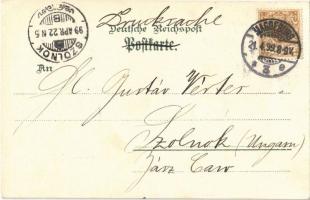 Drucksache
Deutsche Reichspost
Postkarte.
An
H. Gustáv Verter
Szolnok (Ungarn)
SZOLNOK
99 APR. 22 N. 5
21.4.99.8-9V.